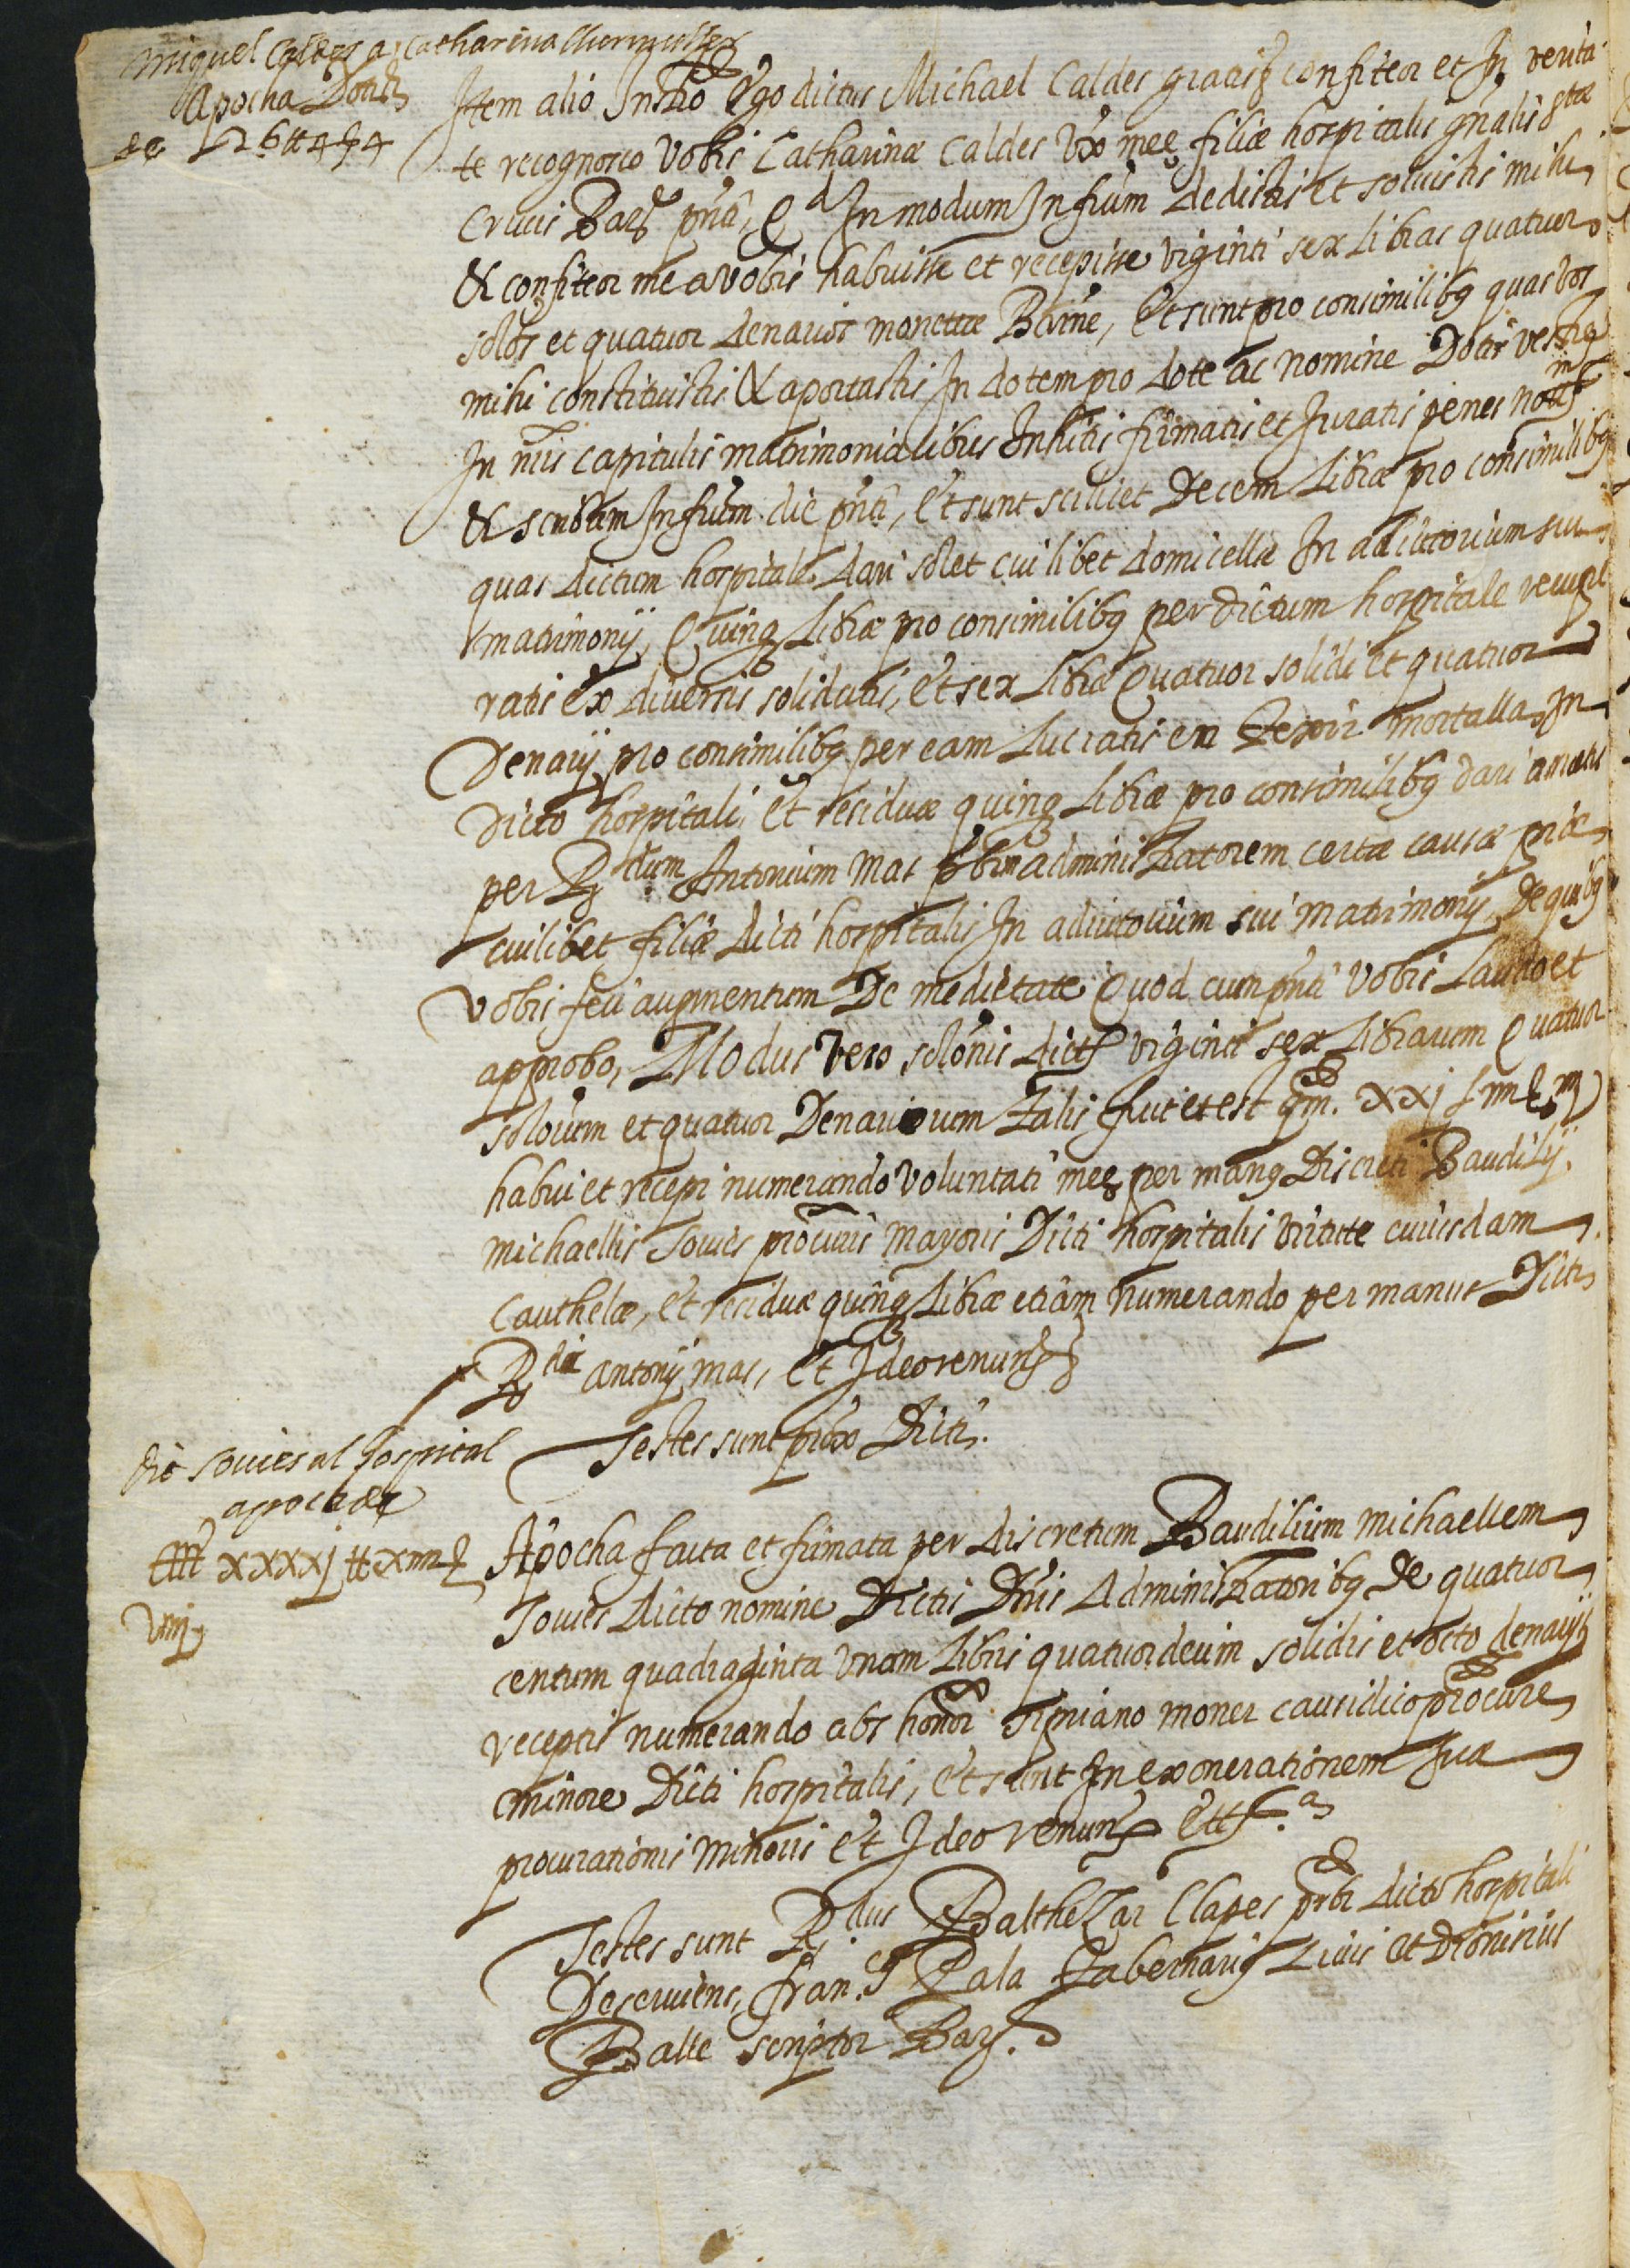 Miquel Caldes a Catharina
Apocha Dotis
de 26 ℔ 4 ẞ 4
Item alio Instro Ego dictus Michael Caldes gratis confiteor et In verita-
te recognosco Vobis Catharinæ Caldes Vxo meę filiæ hospitalis gnalis stæ
Crucis Bar pnti, Qd In modum Infrum dedistis et soluistis mihi
& confiteor me a vobis habuisse et recepisse viginti sex libras quatuor
solos et quatuor denarios monetæ Barne, Et sunt pro consimilibq quas vos
mihi constituistis & aportastis In dotem pro dote ac nomine Dotis vestrę
In nris capitulis matrimonialibus Inhitis firmatis et Iuratis penes not
& scribam Infrum die pnti, Et sunt scilicet Decem Libræ pro consimilibq
quas dictum hospitale dari solet cuilibet domicellæ In adiutorium sui
matrimonij, Quinq Libræ pro consimilibq per dictum hospitale recupe
ratis Ex diversis solidatis, Et sex Libræ Quatuor solidi et quatuor
Denarij pro consimilibq per eam Lucratis en texir mortalla In
Dicto hospitali, Et residuæ quinq Libræ pro consimilibq dari
per Rdum Antonium Mas pbrm administratorem certæ causæ piæ
cuilibet filiæ dicti hospitalis In adiutorium sui matrimonij De quibq
vobis feci augmentum De medietate Quod cum pnti Vobis Laudo et
approbo, Modus Vero solonis dict Viginti sex Librarum Quatuor
solorum et quatuor Denariorum talis fuit et est qm. xxj ẞ iiij
habui et recepi numerando voluntati meę per manq Discreti Baudilij
Michaellis Soures procuris mayoris Dicti hospitalis virtute cuiusdam
Cauthelæ, Et residuæ quinq Libræ etiam numerando per manus Dicti
Rdi Antonij Mas, Et Ideo renun
Testes sunt proxo Dicti.
Dit Soures al hospital
apocha de
CCCC xxxxj ℔ xiiij ẞ
viij
Apocha facta et firmata per discretum Baudilium Michaellem
Soures dicto nomine Dictis Dnis Administratoribq De quatuor
centum quadraginta vnam Libris quatuordecim solidis et octo denarijs
receptis numerando abs honor Sipriano Moner causidico procure
minore Dicti hospitalis, Et sunt In exonerationem suæ
procurationis minoris Et Ideo renun Ett a
Testes sunt Rdus Balthezar Clapes pbr dicto hospitali
Deserviens, Fran. Pala Tabernariq Civis Et Dionisius
Balle scriptor Bar.